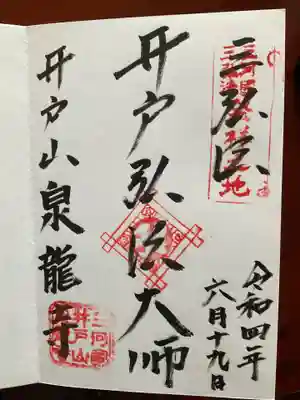 三弘法
令和四年
六月十九日
井戸弘法大師
井戸山泉龍寺
三河国
井戸山